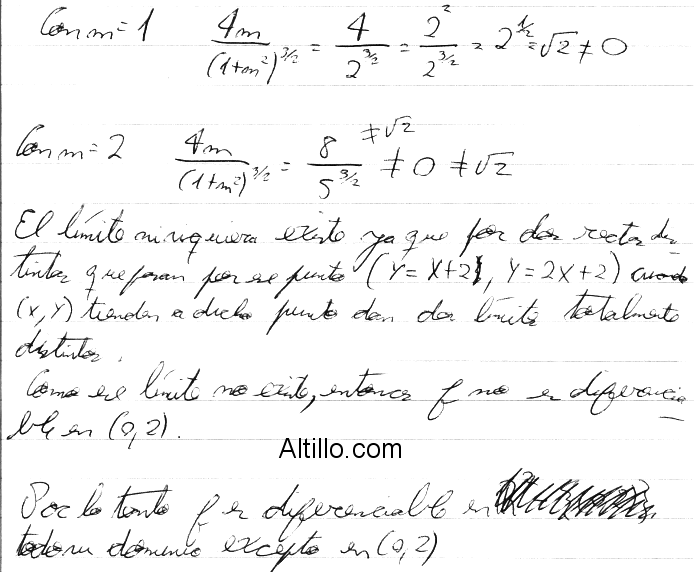 Con m = 1 4m/(1+m²)^3/2 = 4/2^3/2 = 2²/2^3/2 = 2^1/2 = √2 ≠ 0
Con m = 2 4m/(1+m²)^3/2 = 8/5^3/2 ≠ √2 ≠ 0 ≠ √2
El límite ni siquiera existe ya que por dos rectas dis
tintas que pasan por ese punto (Y = X+2, Y = 2X+2) cuando
(X, Y) tienden a dicho punto dan dos límites totalmente
distintos.
Como ese límite no existe, entonces f no es diferencia
ble en (0,2).
Altillo.com
Por lo tanto f es diferenciable en
todo su dominio excepto en (0,2)